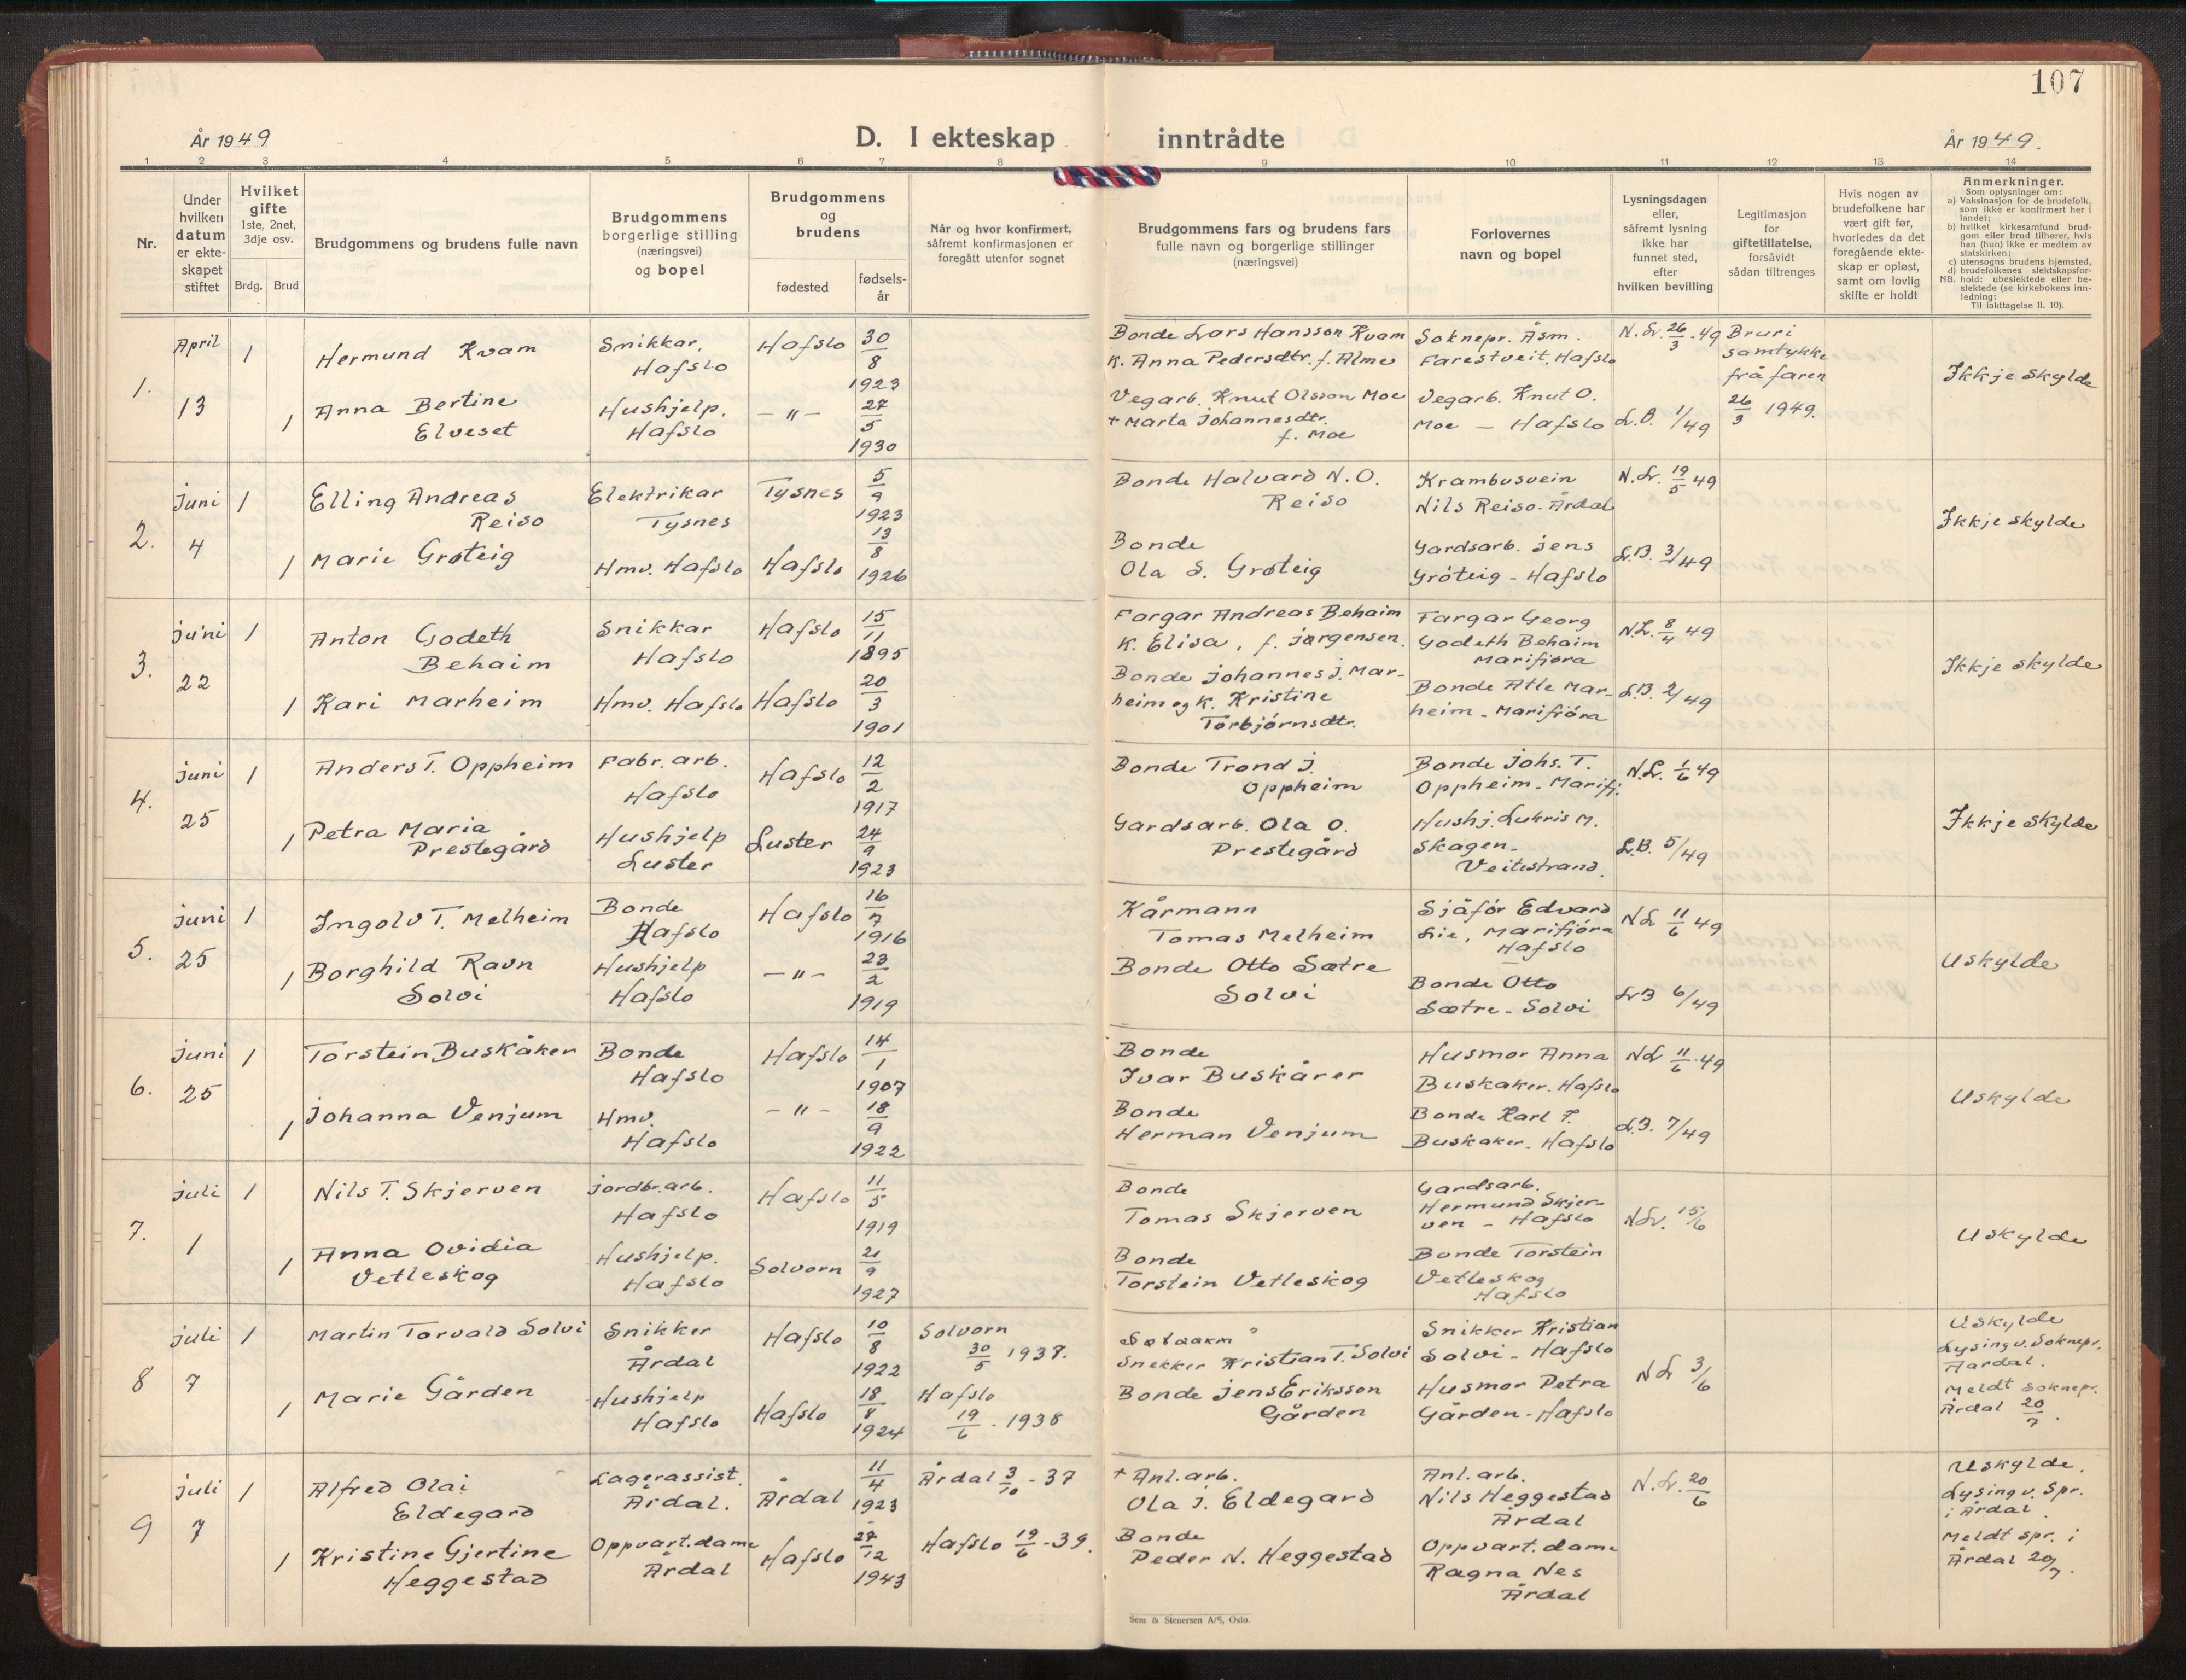 107
År 1949
D. I ekteskap inntrådte
År 1949.
1 2 3 4 5 6 7 8 9 10 11 12 13 14
Nr.
Under
hvilken
datum
er ekte-
skapet
stiftet
Hvilket
gifte
1ste, 2net,
3dje osv.
Brdg. Brud
Brudgommens og brudens fulle navn
Brudgommens
borgerlige stilling
(næringsvei)
og bopel
Brudgommens
og
brudens
fødested
fødsels-
år
Når og hvor konfirmert,
såfremt konfirmasjonen er
foregått utenfor sognet
Brudgommens fars og brudens fars
fulle navn og borgerlige stillinger
(næringsvei)
Forlovernes
navn og bopel
Lysningsdagen
eller,
såfremt lysning
ikke har
funnet sted,
efter
hvilken bevilling
Legitimasjon
for
giftetillatelse,
forsåvidt
sådan tiltrenges
Hvis nogen av
brudefolkene har
vært gift før,
hvorledes da det
foregående ekte-
skap er opløst,
samt om lovlig
skifte er holdt
Anmerkninger.
Som oplysninger om:
a) Vaksinasjon for de brudefolk,
som ikke er konfirmert her i
landet;
b) hvilket kirkesamfund brud-
gom eller brud tilhører, hvis
han (hun) ikke er medlem av
statskirken;
c) utensogns brudens hjemsted,
d) brudefolkenes slektskapsfor-
NB. hold: ubeslektede eller be-
slektede (se kirkebokens inn-
ledning:
Til iakttagelse II. 10).
1.
April
13
1
Hermund Kvam
Snikkar,
Hafslo
Hafslo
30/8
1923
Bonde Lars Hansson Kvam
K. Anna Pedersdtr. f. Alme
Soknepr. Åsm.
Farestveit, Hafslo
N. L. 26/3. 49
Bruri
samtykke
frå faren
26/3 1949.
Ikkje skylde
1
Anna Bertine
Elveset
Hushjelp.
Hafslo
- " -
27/5
1930
Vegarb. Knut Olsson Moe
+ Marta Johannesdtr.
f. Moe
Vegarb. Knut O.
Moe - Hafslo
L.B. 1/49
2.
Juni
4
1
Elling Andreas
Reiso
Elektrikar
Tysnes
Tysnes
5/9
1923
Bonde Halvard N. O.
Reiso
Krambusvein
Nils Reiso - Årdal
N. L. 19/5 49
Ikkje skylde
1
Marie Grøteig
Hmv. Hafslo
Hafslo
13/8
1926
Bonde
Ola S. Grøteig
Gardsarb. Jens
Grøteig - Hafslo
L.B. 3/49
3.
Juni
22
1
Anton Godeth
Behaim
Snikkar
Hafslo
Hafslo
15/11
1895
Fargar Andreas Behaim
K. Elisa, f. Jørgensen.
Fargar Georg
Godeth Behaim
Marifjøra
N.L. 8/4 49
Ikkje skylde
1
Kari Marheim
Hmv. Hafslo
Hafslo
20/3
1901
Bonde Johannes J. Mar-
heim og K. Kristine
Torbjørnsdtr.
Bonde Atle Mar-
heim - Marifjøra
L.B. 2/49
4.
Juni
25
1
Anders T. Oppheim
Fabr. arb.
Hafslo
Hafslo
12/2
1917
Bonde Trond J.
Oppheim
Bonde Johs. T.
Oppheim - Marifj.
N.L. 1/6 49
Ikkje skylde
1
Petra Maria
Prestegård
Hushjelp
Luster
Luster
24/9
1923
Gardsarb. Ola O.
Prestegård
Hushj. Lukris M.
Skagen -
Veitestrand.
L.B. 5/49
5.
Juni
25
1
Ingolv T. Melheim
Bonde
Hafslo
Hafslo
16/7
1916
Kårmann
Tomas Melheim
Sjåfør Edvard
Lie, Marifjøra
Hafslo
N L 11/6 49
Uskylde
1
Borghild Ravn
Solvi
Hushjelp
Hafslo
- " -
23/2
1919
Bonde Otto Sætre
Solvi
Bonde Otto
Sætre - Solvi
L B 6/49
6.
Juni
25
1
Torstein Buskåker
Bonde
Hafslo
Hafslo
14/1
1907
Bonde
Ivar Buskårer
Husmor Anna
Buskaker. Hafslo
N L 11/6. 49
Uskylde
1
Johanna Venjum
Hmv.
Hafslo
- " -
18/9
1922
Bonde
Herman Venjum
Bonde Karl T.
Buskaker. Hafslo
L.B. 7/49
7.
Juli
1
1
Nils T. Skjerven
Jordbr.arb.
Hafslo
Hafslo
11/5
1919
Bonde
Tomas Skjerven
Gardsarb.
Hermund Skjer-
ven - Hafslo
N L. 15/6
Uskylde
1
Anna Ovidia
Vetleskog
Hushjelp.
Hafslo
Solvorn
21/9
1927
Bonde
Torstein Vetleskog
Bonde Torstein
Vetleskog
Hafslo
8
Juli
7
1
Martin Torvald Solvi
Snikker
Årdal
Hafslo
10/8
1922
Solvorn
30/5 1937.
Snekker Kristian T. Solvi
Snikker Kristian
Solvi - Hafslo
N L 3/6
Uskylde
Lysing v. Soknepr.
Aardal.
Meldt soknepr.
Årdal 20/7.
1
Marie Gården
Hushjelp
Hafslo
Hafslo
18/8
1924
Hafslo
19/6 - 1938
Bonde Jens Eriksson
Gården
Husmor Petra
Gården - Hafslo
9
Juli
7
1
Alfred Olai
Eldegard
Lagerassist.
Årdal.
Årdal
11/4
1923
Årdal 3/10 - 37
+ Anl. arb.
Ola J. Eldegard
Anl. arb.
Nils Heggestad
Årdal
N. L. 20/6
Uskylde.
Lysing v. Spr.
i Årdal.
Meldt spr. i
Årdal 20/7.
1
Kristine Gjertine
Heggestad
Oppvart.dame
Årdal
Hafslo
27/12
1943
Hafslo 19/6 - 39.
Bonde
Peder N. Heggestad
Oppvart. dame
Ragna Nes
Årdal
Sem & Stenersen A/S, Oslo.